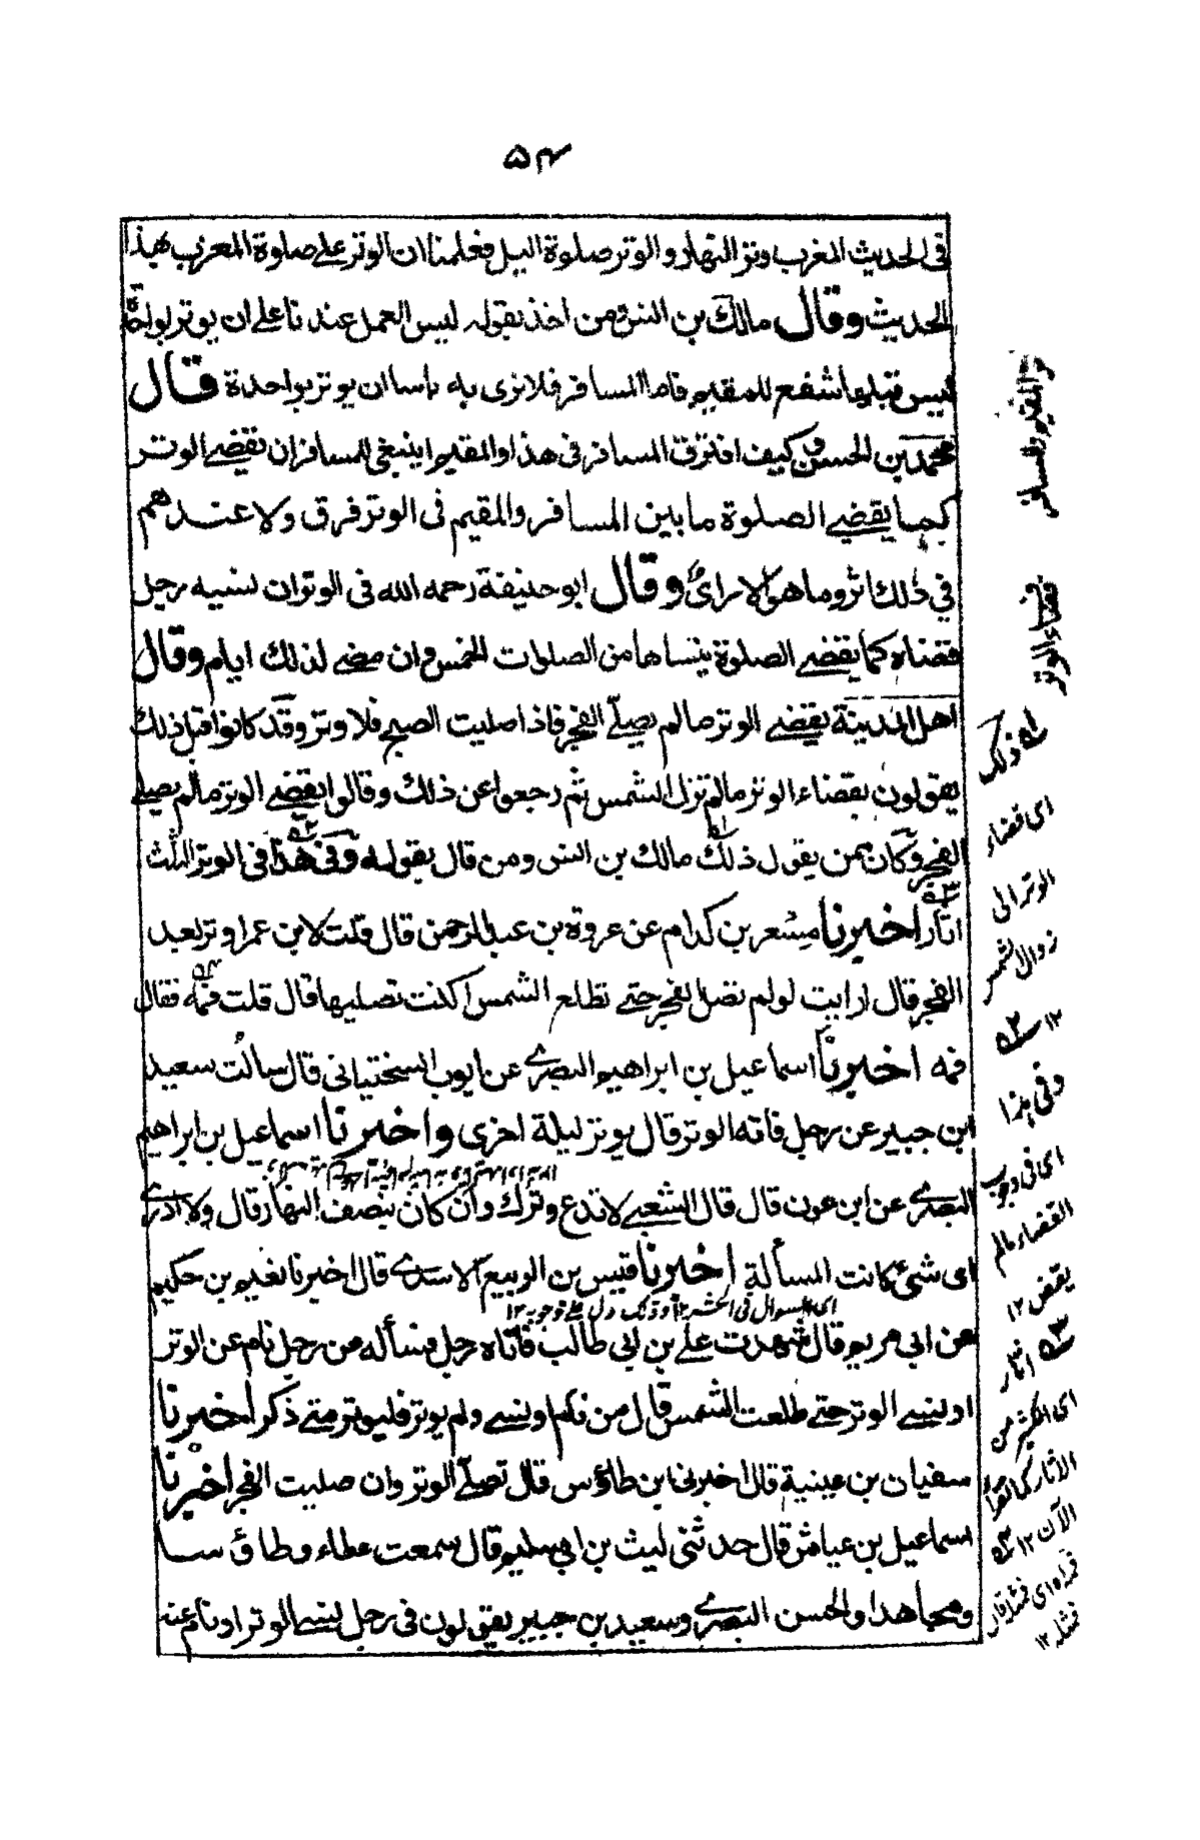 ۵۴
فى الحديث المغرب وتر النهار والوتر صلوة الليل فعلمنا ان الوتر على صلوة المغرب بهذا
الحديث وقال مالك بن انس ومن اخذ بقوله ليس العمل عندنا على ان يوتر بواحدة
ليس قبلها شفع للمقيم فاما المسافر فلا نرى به باسا ان يوتر بواحدة قال
محمد بن الحسن وكيف افترق المسافر فى هذا والمقيم اينبغى للمسافر ان يقضے الوتر
كما يقضے الصلوة ما بين المسافر والمقيم فى الوتر فرق ولا عندهم
في ذلك اثر وما هو الا راى وقال ابو حنيفة رحمه الله فى الوتر ان نسيه رجل
قضاه كما يقضے الصلوة ينساها من الصلوات الخمس وان مضے لذلك ايام وقال
اهل المدينة يقضے الوتر ما لم يصلّے الفجر فاذا صليت الصبح فلا وتر وقد كانوا قبل ذلك
يقولون بقضاء الوتر ما لم تزل الشمس ثم رجعوا عن ذلك وقالوا يقضے الوتر ما لم يصلے
الفجر وكان ممن يقول ذلك مالك بن انس ومن قال بقوله وفى هذا فى الوتر الثلث
اثار اخبرنا مسعر بن كدام عن عروة بن عبد الرحمن قال قلت لابن عمر اوتر بعد
الفجر قال ارايت لو لم تصل الفجر حتے تطلع الشمس اكنت تصليها قال قلت فمه فقال
فمه اخبرنا اسماعيل بن ابراهيم البصرے عن ايوب السختيانى قال سالت سعيد
ابن جبير عن رجل فاته الوتر قال يوتر ليلة اخرى واخبرنا اسماعيل بن ابراهيم
البصرے عن ابن عون قال قال الشعبے لا تدع وترك وان كان بنصف النهار قال ولا ادرے
اى شئ كانت المسألة اخبرنا قيس بن الربيع الاسدے قال اخبرنا نعيم بن حكيم
اى السوال فى الحشر ۱۲ وذلك دل على وجوبه ۱۲
عن ابى مريم قال شهدت على بن ابى طالب فاتاه رجل فسأله من رجل نام عن الوتر
او نسے الوتر حتے طلعت الشمس قال من نام او نسے ولم يوتر فليوتر متے ذكر اخبرنا
سفيان بن عيينة قال اخبرنى ابن طاؤس قال تصلّے الوتر وان صليت الفجر اخبرنا
اسماعيل بن عياش قال حدثنى ليث بن ابى سليم قال سمعت عطاء وطاؤسا
ومجاهدا والحسن البصرے وسعيد بن جبير يقولون فى رجل نسے الوتر او نام عنه
وتر المقيم والمسافر
قضاء الوتر
لـه ذلك
اى قضاء
الوتر الى
زوال الشمس
۱۲ ـه۲
وفى هذا
اى فى وجوب
القضاء مالم
يقض ۱۲
ـه۳ اثار
اى اكثر من
الاثار كما تقرأ
الآن ۱۲